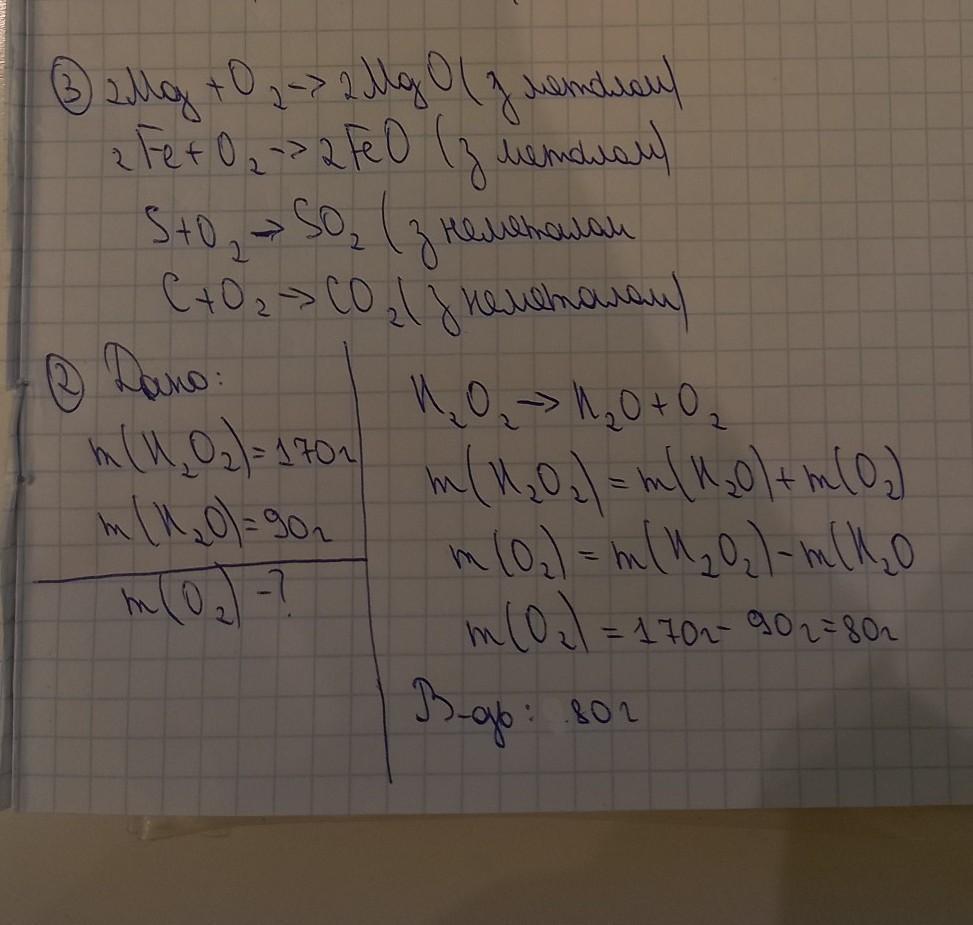 ③ 2Mg + O₂ -> 2MgO (з металом)
2Fe + O₂ -> 2FeO (з металом)
S+O₂ -> SO₂ (з неметалом
C+O₂ -> CO₂ (з неметалом)
② Дано:
m(H₂O₂)=170г
m(H₂O)=90г
m(O₂) -?
H₂O₂ -> H₂O + O₂
m(H₂O₂) = m(H₂O) + m(O₂)
m(O₂) = m(H₂O₂) - m(H₂O
m(O₂) = 170г - 90г = 80г
В-дь: 80г